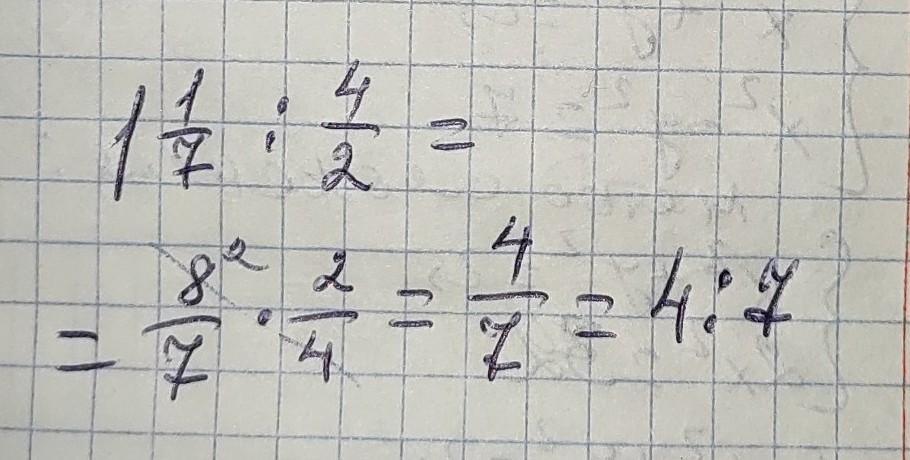 1 1/7 : 4/2 =
= 8²/7 · 2/4 = 4/7 = 4:7